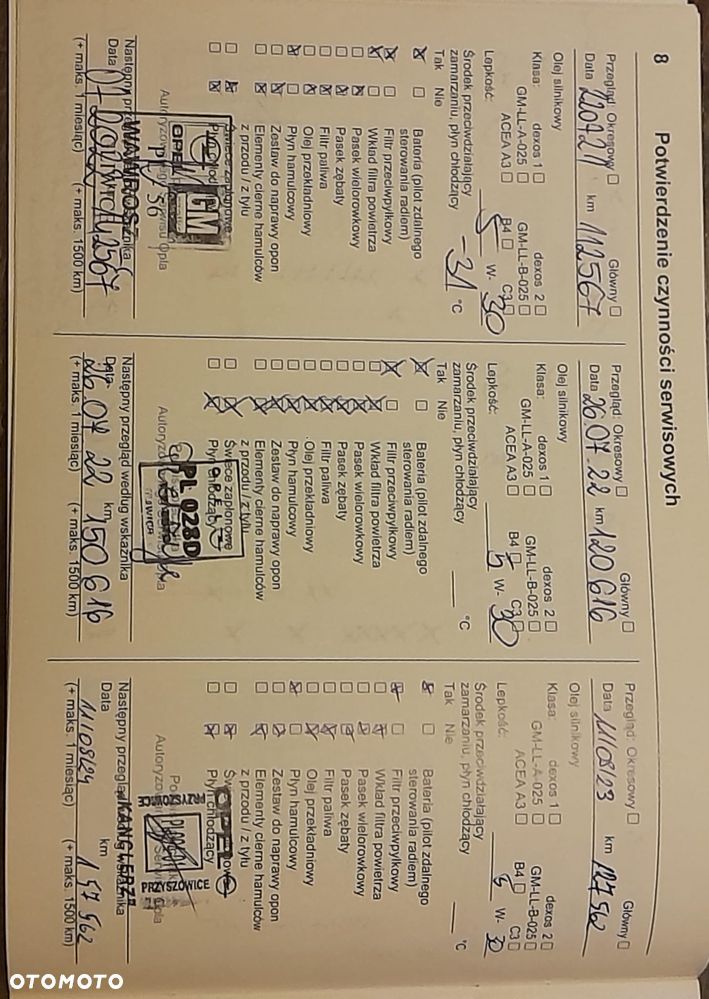 8 Potwierdzenie czynności serwisowych
Przegląd: Okresowy ☐ Główny ☐
Data 220721 km 112567
Olej silnikowy
Klasa: dexos 1 ☐ dexos 2 ☐
GM-LL-A-025 ☐ GM-LL-B-025 ☐
ACEA A3 ☐ B4 ☐ C3 ☐
Lepkość: 5 W- 30
Środek przeciwdziałający
zamarzaniu, płyn chłodzący -31 °C
Tak Nie
Bateria (pilot zdalnego
sterowania radiem)
Filtr przeciwpyłkowy
Wkład filtra powietrza
Pasek wielorowkowy
Pasek zębaty
Filtr paliwa
Olej przekładniowy
Płyn hamulcowy
Zestaw do naprawy opon
Elementy cierne hamulców
z przodu / z tyłu
Świece zapłonowe
OPEL
GM
WAWROSZ
Następny przegląd
Data km 142567
(+ maks. 1 miesiąc) (+ maks. 1500 km)
Przegląd: Okresowy ☐ Główny ☐
Data 26.07.22 km 120616
Olej silnikowy
Klasa: dexos 1 ☐ dexos 2 ☐
GM-LL-A-025 ☐ GM-LL-B-025 ☐
ACEA A3 ☐ B4 ☐ C3 ☐
Lepkość: 5 W- 30
Środek przeciwdziałający
zamarzaniu, płyn chłodzący °C
Tak Nie
Bateria (pilot zdalnego
sterowania radiem)
Filtr przeciwpyłkowy
Wkład filtra powietrza
Pasek wielorowkowy
Pasek zębaty
Filtr paliwa
Olej przekładniowy
Płyn hamulcowy
Zestaw do naprawy opon
Elementy cierne hamulców
z przodu / z tyłu
Świece zapłonowe
Płyn chłodzący
OPEL
PL 028D
Następny przegląd według wskaźnika
Data 26.07.22 km 150616
(+ maks. 1 miesiąc) (+ maks. 1500 km)
Przegląd: Okresowy ☐ Główny ☐
Data 11/08/23 km 127562
Olej silnikowy
Klasa: dexos 1 ☐ dexos 2 ☐
GM-LL-A-025 ☐ GM-LL-B-025 ☐
ACEA A3 ☐ B4 ☐ C3 ☐
Lepkość: 5 W- 30
Środek przeciwdziałający
zamarzaniu, płyn chłodzący °C
Tak Nie
Bateria (pilot zdalnego
sterowania radiem)
Filtr przeciwpyłkowy
Wkład filtra powietrza
Pasek wielorowkowy
Pasek zębaty
Filtr paliwa
Olej przekładniowy
Płyn hamulcowy
Zestaw do naprawy opon
Elementy cierne hamulców
z przodu / z tyłu
Płyn chłodzący
OPEL
PRZYSZOWICE
PRZYSZOWICE
"KANCLERZ"
Następny przegląd
Data 11/08/24 km 157562
(+ maks. 1 miesiąc) (+ maks. 1500 km)
OTOMOTO